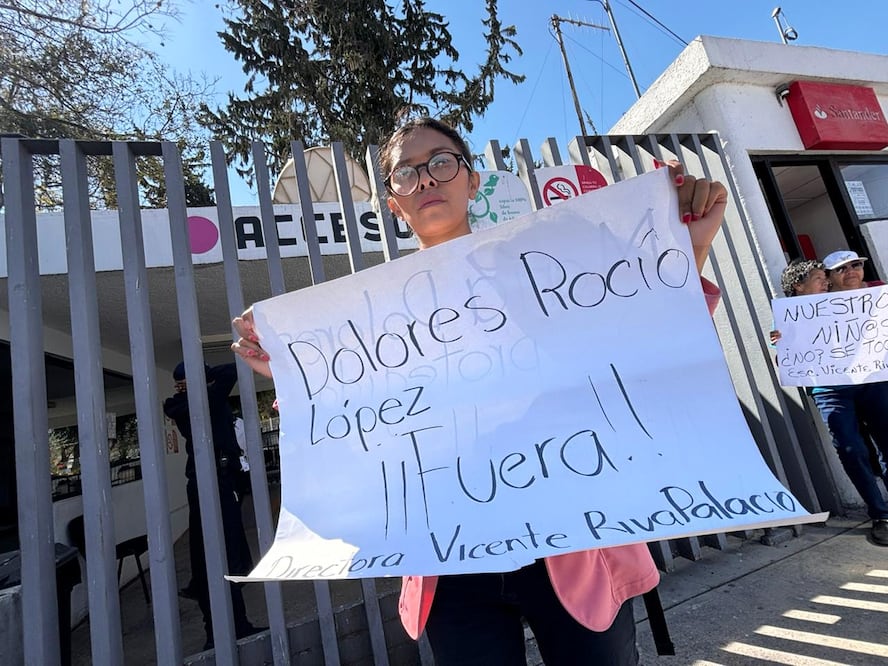 ACCESO
Santander
Dolores Rocío
López
¡¡Fuera!!
Directora Vicente RivaPalacio
NUESTRO
NIÑOS
¿NO? SE TOC
ESC. VICENTE RIV